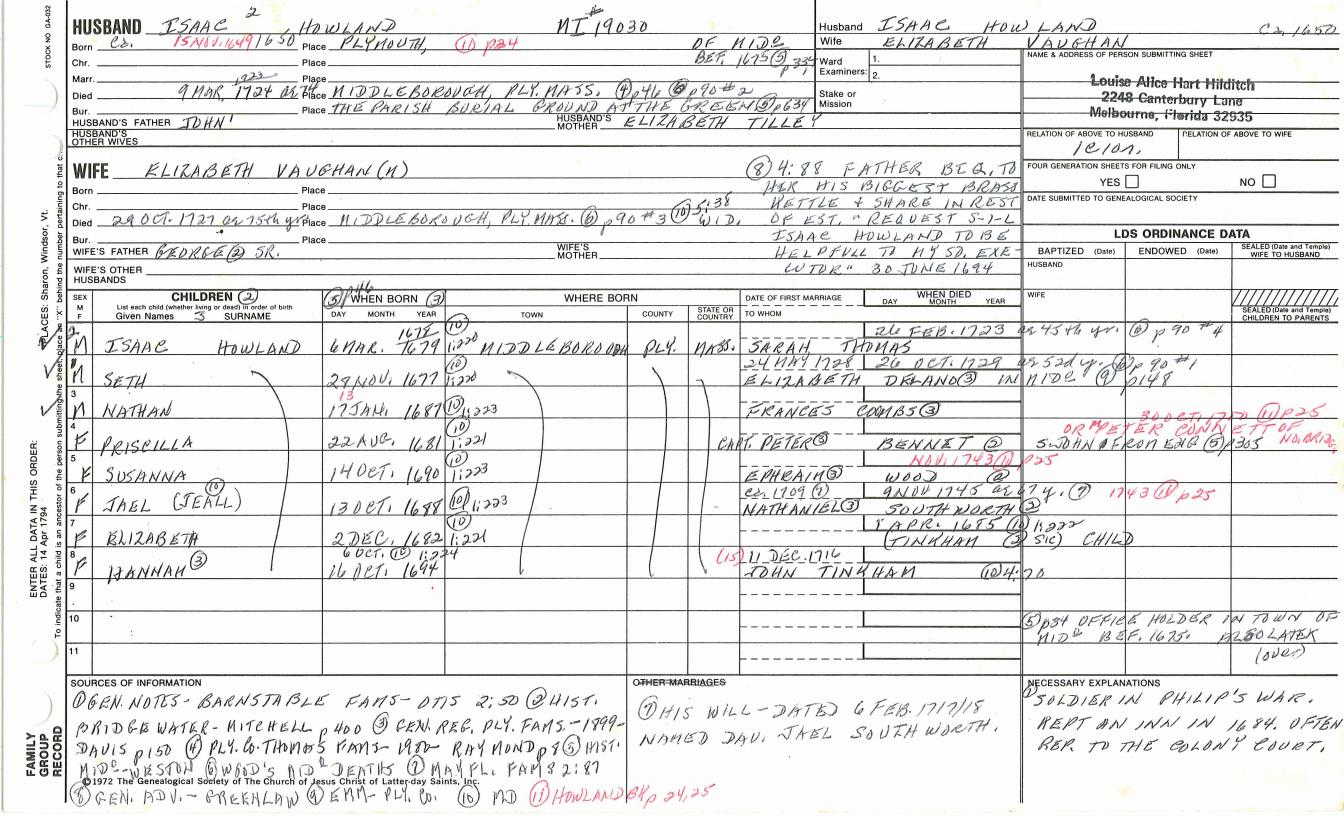 STOCK NO. GA-032
HUSBAND ISAAC 2 HOWLAND MI# 19030
Born Ca. 15 NOV. 1649/1650 Place PLYMOUTH, ⑪ p24 OF MIDo
Chr. Place BEF. 1675 ⑤
Marr. Place
Died 9 MAR. 1723 1724 Place MIDDLEBOROUGH, PLY. MASS. ④ p46 ⑥ p90 #2
Bur. Place THE PARISH BURIAL GROUND AT THE GREEN ⑤ p634
HUSBAND'S FATHER JOHN 1 HUSBAND'S MOTHER ELIZABETH TILLEY
HUSBAND'S OTHER WIVES
Husband ISAAC HOWLAND Ca. 1650
Wife ELIZABETH VAUGHAN
Ward Examiners: 1.
2.
Stake or Mission
NAME & ADDRESS OF PERSON SUBMITTING SHEET
Louise Alice Hart Hilditch
2248 Canterbury Lane
Melbourne, Florida 32935
RELATION OF ABOVE TO HUSBAND RELATION OF ABOVE TO WIFE
FOUR GENERATION SHEETS FOR FILING ONLY
YES NO
DATE SUBMITTED TO GENEALOGICAL SOCIETY
WIFE ELIZABETH VAUGHAN (n)
Born Place
Chr. Place
Died 29 OCT. 1727 ae 75th yr. Place MIDDLEBOROUGH, PLY. MASS. ⑥ p90 #3 ⑩ 5:38 WID.
Bur. Place
WIFE'S FATHER GEORGE ② SR. WIFE'S MOTHER
WIFE'S OTHER HUSBANDS
⑧ 4:88 FATHER BEQ. TO
HER HIS BIGGEST BRASS
KETTLE & SHARE IN REST
OF EST. "REQUEST S-I-L
ISAAC HOWLAND TO BE
HELPFULL TO MY SD. EXE-
CUTOR" 30 JUNE 1694
LDS ORDINANCE DATA
BAPTIZED (Date) ENDOWED (Date) SEALED (Date and Temple) WIFE TO HUSBAND
HUSBAND
WIFE
SEALED (Date and Temple) CHILDREN TO PARENTS
SEX M F
CHILDREN ②
List each child (whether living or dead) in order of birth
Given Names 3 SURNAME
⑤ p46 WHEN BORN ③
DAY MONTH YEAR
WHERE BORN
TOWN COUNTY STATE OR COUNTRY
DATE OF FIRST MARRIAGE
TO WHOM
WHEN DIED
DAY MONTH YEAR
2 M ISAAC HOWLAND 6 MAR. 1678 1679 ⑩ 1:220 MIDDLEBOROUGH PLY. MASS. SARAH THOMAS 26 FEB. 1723 ae 45th yr. ⑥ p90 #4
1 M SETH 28 NOV. 1677 ⑩ 1:220 24 MAY 1728 ELIZABETH DELANO ③ 26 OCT. 1729 ae 52d yr. ⑥ p90 #1 IN MIDo ⑨ p148
3 M NATHAN 13 17 JAN. 1687 ⑩ 1:223 FRANCES COOMBS ③
4 F PRISCILLA 22 AUG. 1681 ⑩ 1:221 CAPT. PETER ③ BENNET ② S. JOHN FROM ENG ⑤ p305
30 OCT. 1750 ⑪ p25
5 F SUSANNA 14 OCT. 1690 ⑩ 1:223 EPHRAIM ③ WOOD ② NOV. 1743 ⑪ p25
6 F JAEL (JEALL) ⑩ 13 OCT. 1688 ⑩ 1:223 ca. 1709 ⑦ NATHANIEL ③ SOUTHWORTH ② 9 NOV 1745 ae 67 y. ⑦ 1743 ⑪ p25
7 F ELIZABETH 2 DEC. 1682 ⑩ 1:221 8 APR. 1685 ⑩ 1:222 (TINKHAM ② SIC) CHILD
8 F HANNAH ③ 6 OCT. ⑩ 1:224 16 OCT. 1694 (15) 11 DEC. 1716 JOHN TINKHAM ⑩ 4:70
9
10
11
⑤ p34 OFFICE HOLDER IN TOWN OF
MIDo BEF. 1675. ALSO LATER
(over)
SOURCES OF INFORMATION
① GEN. NOTES - BARNSTABLE FAMS - OTIS 2:50 ② HIST.
BRIDGEWATER - MITCHELL p400 ③ GEN. REG. PLY. FAMS. - 1899 -
DAVIS p150 ④ PLY. Co. THOMAS FAMS - 1980 - RAYMOND p8 ⑤ HIST.
MIDo - WESTON ⑥ WOOD'S MIDo DEATHS ⑦ MAY FL. FAMS 2:87
©1972 The Genealogical Society of The Church of Jesus Christ of Latter-day Saints, Inc.
⑧ GEN. ADV. - GREENLAW ⑨ EMM - PLY. Co. ⑩ MD ⑪ HOWLAND BK p 24,25
OTHER MARRIAGES
⑦ HIS WILL - DATED 6 FEB. 1717/18
NAMED DAU. JAEL SOUTHWORTH.
NECESSARY EXPLANATIONS
① SOLDIER IN PHILIP'S WAR.
KEPT AN INN IN 1684. OFTEN
REP. TO THE COLONY COURT.
ENTER ALL DATA IN THIS ORDER:
DATES: 14 Apr 1794
PLACES: Sharon, Windsor, Vt.
To indicate that a child is an ancestor of the person submitting the sheet, place an "X" behind the number pertaining to that c
FAMILY GROUP RECORD